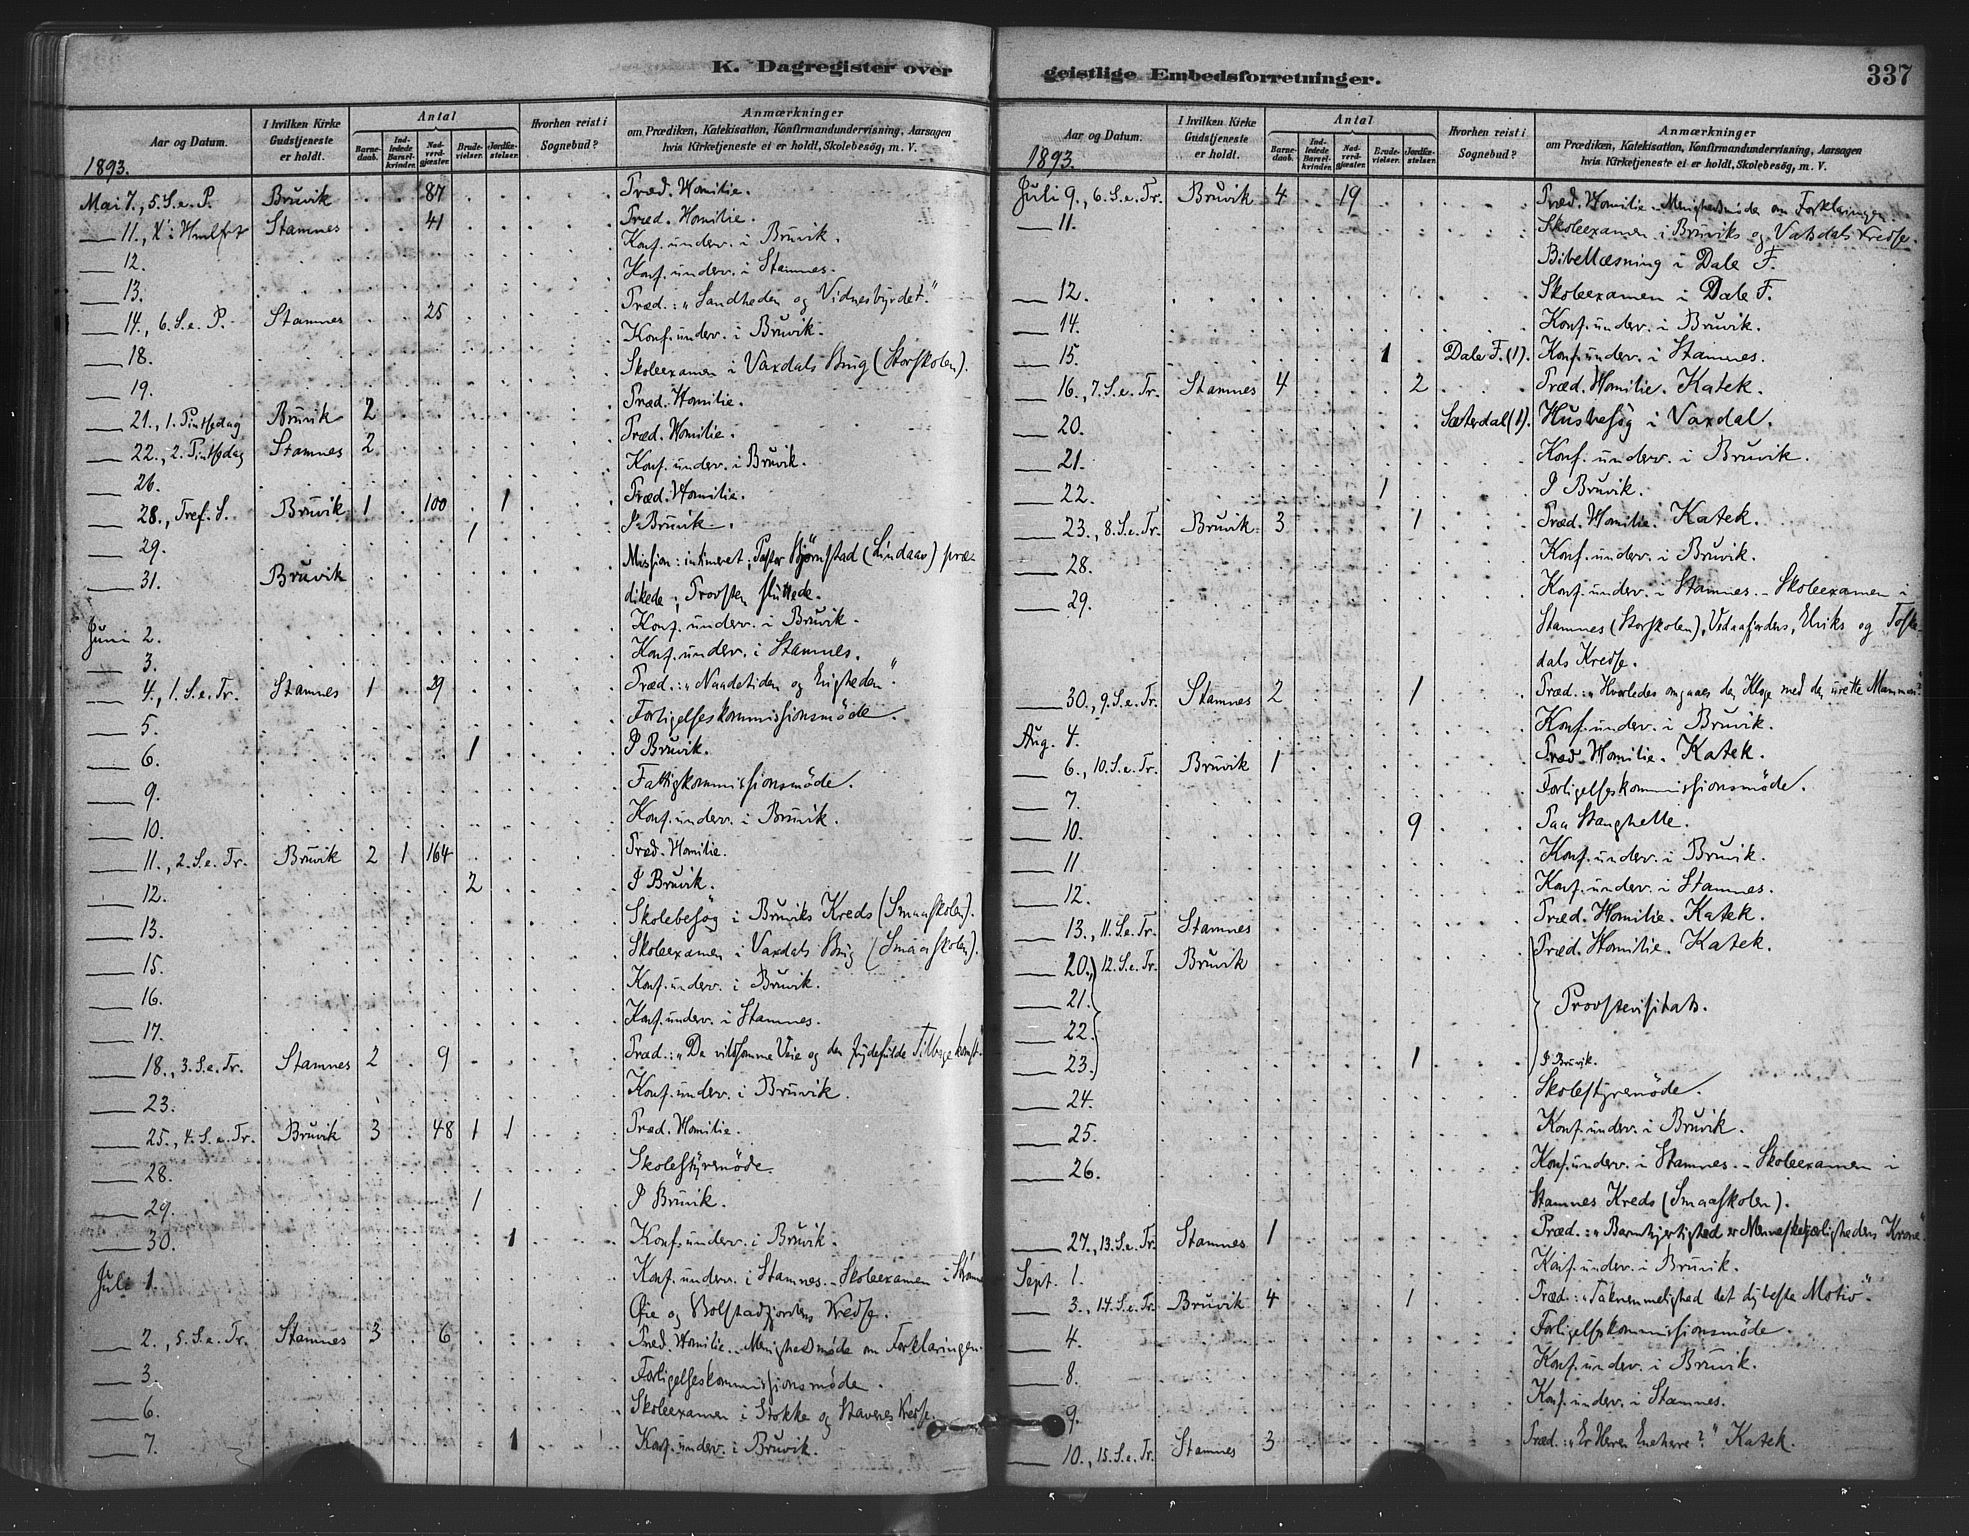 K. Dagregister over
Aar og Datum. | I hvilken Kirke Gudstjeneste er holdt. | Antal | Barnedaab. | Indledede Barselkvinder. | Nadverdgjæster. | Brudevielser. | Jordfæstelser. | Hvorhen reist i Sognebud? | Anmærkninger om Prædiken, Katekisation, Konfirmandundervisning, Aarsagen hvis Kirketjeneste ei er holdt, Skolebesøg, m. V.
1893.
Mai 7., 5. S. e. P. Bruvik 87 Præd. Homilie.
11., Stamnes 41 Præd. Homilie.
12. Konf. underv. i Bruvik.
13. Konf. underv. i Stamnes.
14., 6. S. e. P. Stamnes 25 Præd.: "Sandheden og Vidnesbyrdet."
18. Konf. underv. i Bruvik.
19. Skoleexamen i Vaxdals Brug (Storskolen).
21., 1. Pintsedag Bruvik 2 Præd. Homilie.
22., 2. Pintsedag Stamnes 2 Præd. Homilie.
26. Konf. underv. i Bruvik.
28., Tref. S. Bruvik 1 100 1 Præd. Homilie.
29. 1 I Bruvik.
31. Bruvik Mission: intimeret; Pastor Bjørnstad (Lindaas) præ-
dikede; Provsten sluttede.
Juni 2. Konf. underv. i Bruvik.
3. Konf. underv. i Stamnes.
4., 1. S. e. Tr. Stamnes 1 29 Præd.: "Naadetiden og Evigheden".
5. Forligelseskommissionsmøde.
6. 1 I Bruvik.
9. Fattigkommissionsmøde.
10. Konf. underv. i Bruvik.
11., 2. S. e. Tr. Bruvik 2 1 164 Præd. Homilie.
12. 2 I Bruvik.
13. Skolebesøg i Bruviks Kreds (Smaaskolen).
15. Skoleexamen i Vaxdals Brug (Smaaskolen).
16. Konf. underv. i Bruvik.
17. Konf. underv. i Stamnes.
18., 3. S. e. Tr. Stamnes 2 9 Præd.: "De vildsomme Veie og den frydefulde Tilbagekomst."
23. Konf. underv. i Bruvik.
25., 4. S. e. Tr. Bruvik 3 48 1 1 Præd. Homilie.
28. Skolestyremøde.
29. 1 I Bruvik.
30. 1 Konf. underv. i Bruvik.
Juli 1. Konf. underv. i Stamnes. - Skoleexamen i
Øie og Bolstadfjordens Kredse.
2., 5. S. e. Tr. Stamnes 3 6 Præd. Homilie. - Menighedsmøde om Forklaringen.
3. Forligelseskommissionsmøde.
6. Skoleexamen i Stokke og Stavenes Kredse.
7. 1 Konf. underv. i Bruvik.
geistlige Embedsforretninger. 337
Aar og Datum. | I hvilken Kirke Gudstjeneste er holdt. | Antal | Barnedaab. | Indledede Barselkvinder. | Nadverdgjæster. | Brudevielser. | Jordfæstelser. | Hvorhen reist i Sognebud? | Anmærkninger om Prædiken, Katekisation, Konfirmandundervisning, Aarsagen hvis Kirketjeneste ei er holdt, Skolebesøg, m. V.
1893.
Juli 9., 6. S. e. Tr. Bruvik 4 19 Præd. Homilie. - Menighedsmøde om Forklaringen.
11. Skoleexamen i Bruviks og Vatsdals Kredse.
Bibellæsning i Dale F.
12. Skoleexamen i Dale F.
14. Konf. underv. i Bruvik.
15. 1 Dale F. (1). Konf. underv. i Stamnes.
16., 7. S. e. Tr. Stamnes 4 2 Præd. Homilie. Katek.
20. Sæterdal (1). Husbesøg i Vaxdal.
21. Konf. underv. i Bruvik.
22. 1 I Bruvik.
23., 8. S. e. Tr. Bruvik 3 1 Præd. Homilie. Katek.
28. Konf. underv. i Bruvik.
29. Konf. underv. i Stamnes. - Skoleexamen i
Stamnes (Storskolen), Vedaafjordens, Eriks og
dals Kredse.
30., 9. S. e. Tr. Stamnes 2 1 Præd.: "Hvorledes omgaaes den Kloge med den urette Mammon?"
Aug. 4. Konf. underv. i Bruvik.
6., 10. S. e. Tr. Bruvik 1 Præd. Homilie. Katek.
7. Forligelseskommissionsmøde.
10. 9 Paa Stanghelle.
11. Konf. underv. i Bruvik.
12. Konf. underv. i Stamnes.
13., 11. S. e. Tr. Stamnes Præd. Homilie. Katek.
20., 12. S. e. Tr. Bruvik Præd. Homilie. Katek.
21.
22. Provstevisitats.
23. 1 I Bruvik.
24. Skolestyremøde.
25. Konf. underv. i Bruvik.
26. Konf. underv. i Stamnes. - Skoleexamen i
Stamnes Kreds (Smaaskolen).
27., 13. S. e. Tr. Stamnes 1 Præd.: "Barmhjertighed er Menneskekjærlighedens Krone."
Sept. 1. Konf. underv. i Bruvik.
3., 14. S. e. Tr. Bruvik 4 1 Præd.: "Taknemmelighed det dybeste Motiv".
4. Forligelseskommissionsmøde.
8. Konf. underv. i Bruvik.
9. Konf. underv. i Stamnes.
10., 15. S. e. Tr. Stamnes 3 Præd.: "Er Herren Eneherre?" Katek.